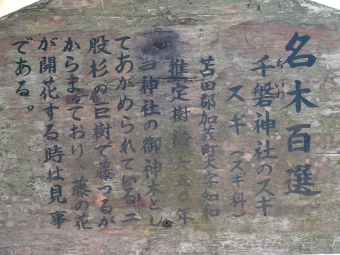 名木百選
千磐神社のスギ
スギ（スギ科）
苫田郡加茂町大字知和
推定樹 五〇年
当神社の御神木とし
てあがめられている二
股杉の巨樹で藤づるが
からまっており 藤の花
が開花する時は見事
である。